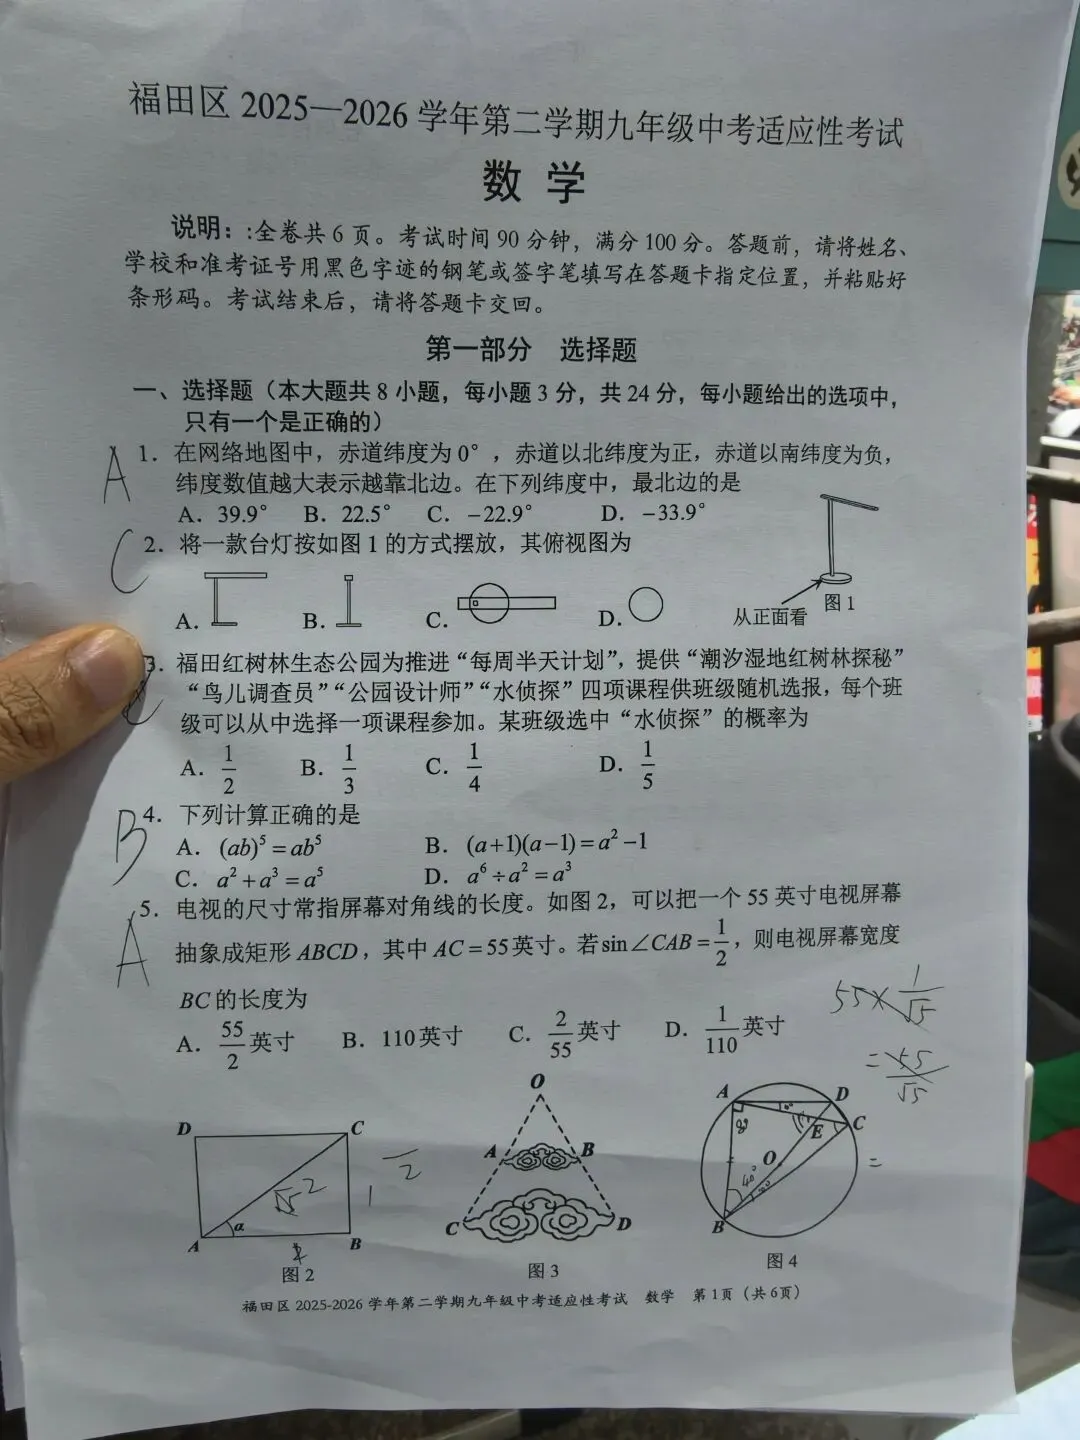 福田区 2025—2026 学年第二学期九年级中考适应性考试
数 学
说明：:全卷共 6 页。考试时间 90 分钟，满分 100 分。答题前，请将姓名、
学校和准考证号用黑色字迹的钢笔或签字笔填写在答题卡指定位置，并粘贴好
条形码。考试结束后，请将答题卡交回。
第一部分 选择题
一、选择题（本大题共 8 小题，每小题 3 分，共 24 分，每小题给出的选项中，
只有一个是正确的）
A 1．在网络地图中，赤道纬度为 0°，赤道以北纬度为正，赤道以南纬度为负，
纬度数值越大表示越靠北边。在下列纬度中，最北边的是
A．39.9° B．22.5° C．−22.9° D．−33.9°
C 2．将一款台灯按如图 1 的方式摆放，其俯视图为
A． B． C． D． 从正面看 图 1
3．福田红树林生态公园为推进“每周半天计划”，提供“潮汐湿地红树林探秘”
“鸟儿调查员”“公园设计师”“水侦探”四项课程供班级随机选报，每个班
级可以从中选择一项课程参加。某班级选中“水侦探”的概率为
A．1/2 B．1/3 C．1/4 D．1/5
B 4．下列计算正确的是
A．(ab)⁵=ab⁵ B．(a+1)(a−1)=a²−1
C．a²+a³=a⁵ D．a⁶÷a²=a³
A 5．电视的尺寸常指屏幕对角线的长度。如图 2，可以把一个 55 英寸电视屏幕
抽象成矩形 ABCD，其中 AC=55英寸。若sin∠CAB=1/2，则电视屏幕宽度
BC的长度为
55×1/√5
A．55/2英寸 B．110英寸 C．2/55英寸 D．1/110英寸
=55/√5
D C A B α √5 2 1
图 2
O A B C D
图 3
A D E C O B 40°
=
图 4
福田区 2025-2026 学年第二学期九年级中考适应性考试 数学 第 1页（共 6页）